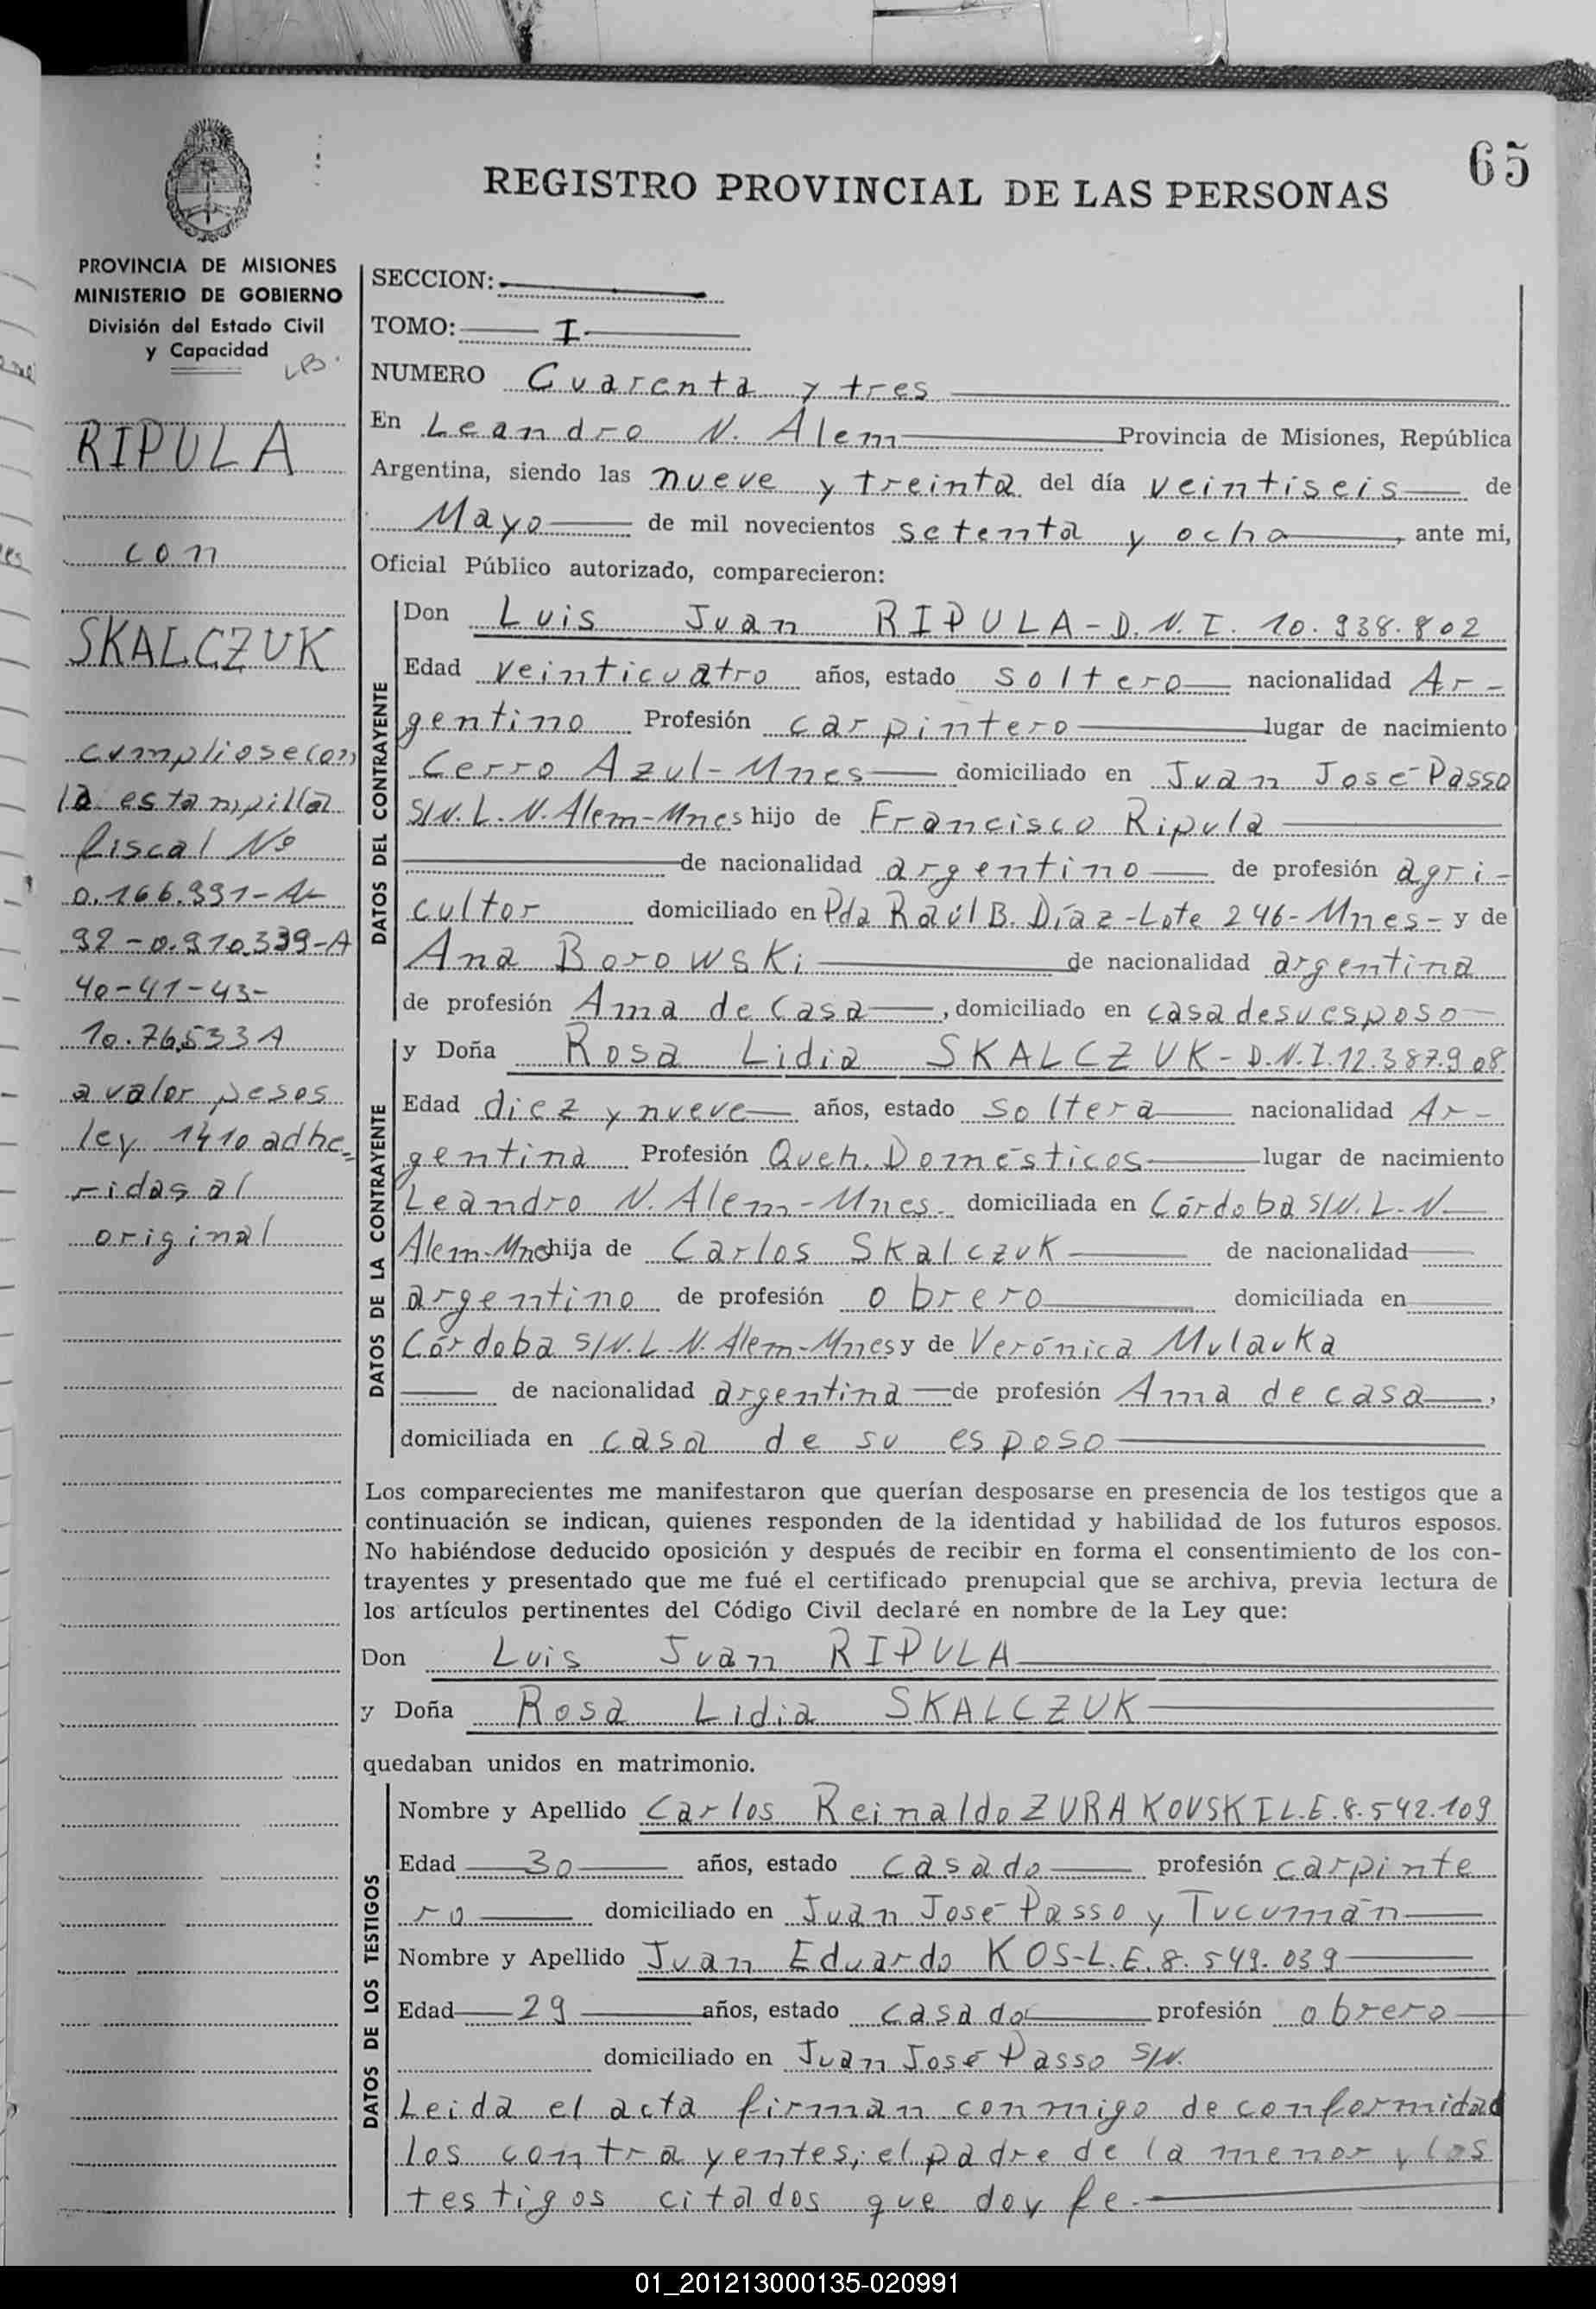 65
REGISTRO PROVINCIAL DE LAS PERSONAS
PROVINCIA DE MISIONES
MINISTERIO DE GOBIERNO
División del Estado Civil
y Capacidad
RIPULA
con
SKALCZUK
cumpliose con
la estampilla
fiscal Nº
0.166.991-A-
92-0.910.339-A
40-41-43-
10.76533A
a valor pesos
ley 1410 adhe-
ridas al
original
SECCION:
TOMO: I
NUMERO Cuarenta y tres
En Leandro N. Alem Provincia de Misiones, República
Argentina, siendo las nueve y treinta del día veintiseis de
Mayo de mil novecientos setenta y ocho, ante mi,
Oficial Público autorizado, comparecieron:
DATOS DEL CONTRAYENTE
Don Luis Juan RIPULA - D.N.I. 10.938.802
Edad veinticuatro años, estado soltero nacionalidad Ar-
gentino Profesión carpintero lugar de nacimiento
Cerro Azul-Mnes domiciliado en Juan José Passo
S/N. L.N. Alem-Mnes hijo de Francisco Ripula
de nacionalidad argentino de profesión agri-
cultor domiciliado en Pda Raúl B. Díaz-Lote 246-Mnes- y de
Ana Borowski de nacionalidad argentina
de profesión Ama de Casa, domiciliado en casa de su esposo
DATOS DE LA CONTRAYENTE
y Doña Rosa Lidia SKALCZUK - D.N.I. 12.387.908
Edad diez y nueve años, estado soltera nacionalidad Ar-
gentina Profesión Queh. Domésticos lugar de nacimiento
Leandro N. Alem-Mnes. domiciliada en Córdoba S/N. L.N.
Alem-Mnes hija de Carlos Skalczuk de nacionalidad
argentino de profesión obrero domiciliada en
Córdoba S/N. L.N. Alem-Mnes y de Verónica Mulauka
de nacionalidad argentina de profesión Ama de casa,
domiciliada en casa de su esposo
Los comparecientes me manifestaron que querían desposarse en presencia de los testigos que a
continuación se indican, quienes responden de la identidad y habilidad de los futuros esposos.
No habiéndose deducido oposición y después de recibir en forma el consentimiento de los con-
trayentes y presentado que me fué el certificado prenupcial que se archiva, previa lectura de
los artículos pertinentes del Código Civil declaré en nombre de la Ley que:
Don Luis Juan RIPULA
y Doña Rosa Lidia SKALCZUK
quedaban unidos en matrimonio.
DATOS DE LOS TESTIGOS
Nombre y Apellido Carlos Reinaldo ZURAKOVSKI L.E. 8.542.109
Edad 30 años, estado casado profesión carpinte
ro domiciliado en Juan José Passo y Tucumán
Nombre y Apellido Juan Eduardo KOS-L.E. 8.549.039
Edad 29 años, estado casado profesión obrero
domiciliado en Juan José Passo S/N.
Leida el acta firman conmigo de conformidad
los contrayentes, el padre de la menor y los
testigos citados que doy fe.-
01_201213000135-020991